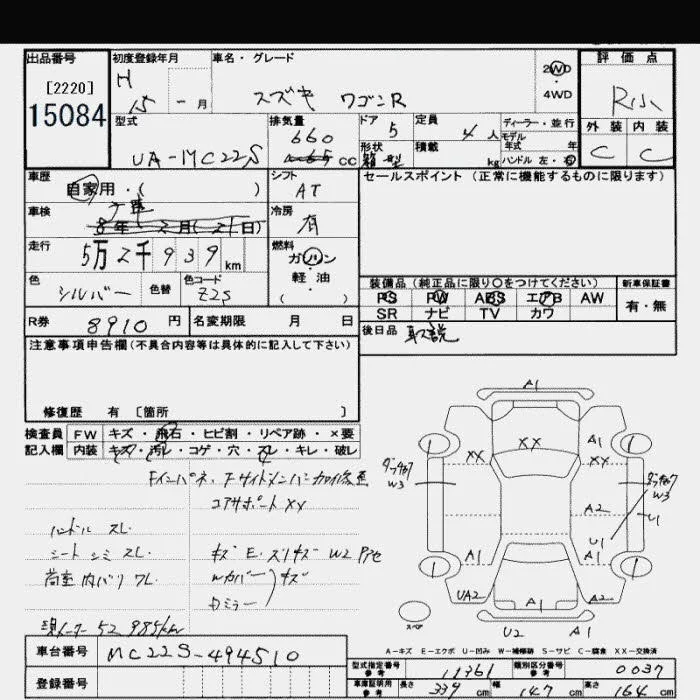 出品番号
[2220]
15084
初度登録年月
H 15 - 月
車名・グレード
スズキ ワゴンR
2WD
・
4WD
評価点
R小
外装 内装
C C
型式
UA-MC22S
排気量
660
cc
ドア 5
形状
箱型
定員 4人
積載 kg
ディーラー・並行
モデル
年式 年
ハンドル 左・右
車歴
自家用・( )
シフト
AT
セールスポイント (正常に機能するものに限ります)
車検
8年 2月(21日)
冷房
有
走行
5万2千939km
燃料
ガソリン
・
軽油
( )
色
シルバー
色替
色コード
Z2S
装備品(純正品に限り○をつけてください)
新車保証書
PS PW ABS エアB AW
SR ナビ TV カワ
有・無
R券 8910 円
名変期限 月 日
後日品 取説
注意事項申告欄(不具合内容等は具体的に記入して下さい)
修復歴 有 〔箇所 〕
検査員
記入欄
FW キズ・飛石・ヒビ割・リペア跡・×要
内装 キズ・汚レ・コゲ・穴・スレ・キレ・破レ
コアサポートXX
ハンドル スレ.
シート シミ スレ.
荷室内バリ ワレ.
キズ E.スリキズ W2
キズ
現メーター 52985km
A1
XX
XX
XX
A1
W3
W3
A2
U1
U1
A1
A1
UA2
A1
A1
U2
スペア
A-キズ E-エクボ U-凹み W-補修跡 S-サビ C-腐食 XX-交換済
車台番号 MC22S-494510
登録番号
型式指定番号
参考
11361
類別区分番号
参考
0037
車庫証明用
参考
長さ 339 cm 幅 147 cm 高さ 164 cm